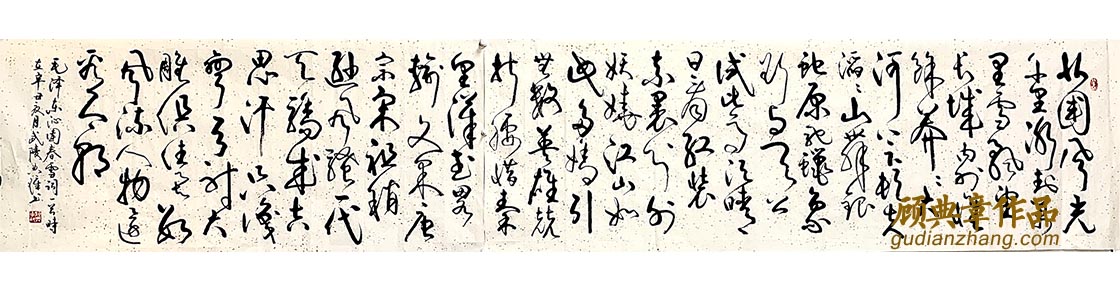 北國风光
千里冰封万
里雪飘望
长城内外惟
餘莽莽大
河上下顿失
滔滔山舞银
蛇原驰蜡象
欲与天公
试比高须晴
日看红装
素裹分外
妖娆江山如
此多娇引
無数英雄竞
折腰惜秦
皇漢武略
输文采唐
宗宋祖稍
逊风骚一代
天骄成吉
思汗只识
弯弓射大
雕俱往矣数
风流人物还
看今朝
毛泽东沁園春雪词一首时
在辛丑夏月武陵山
顾典章作品
gudianzhang.com